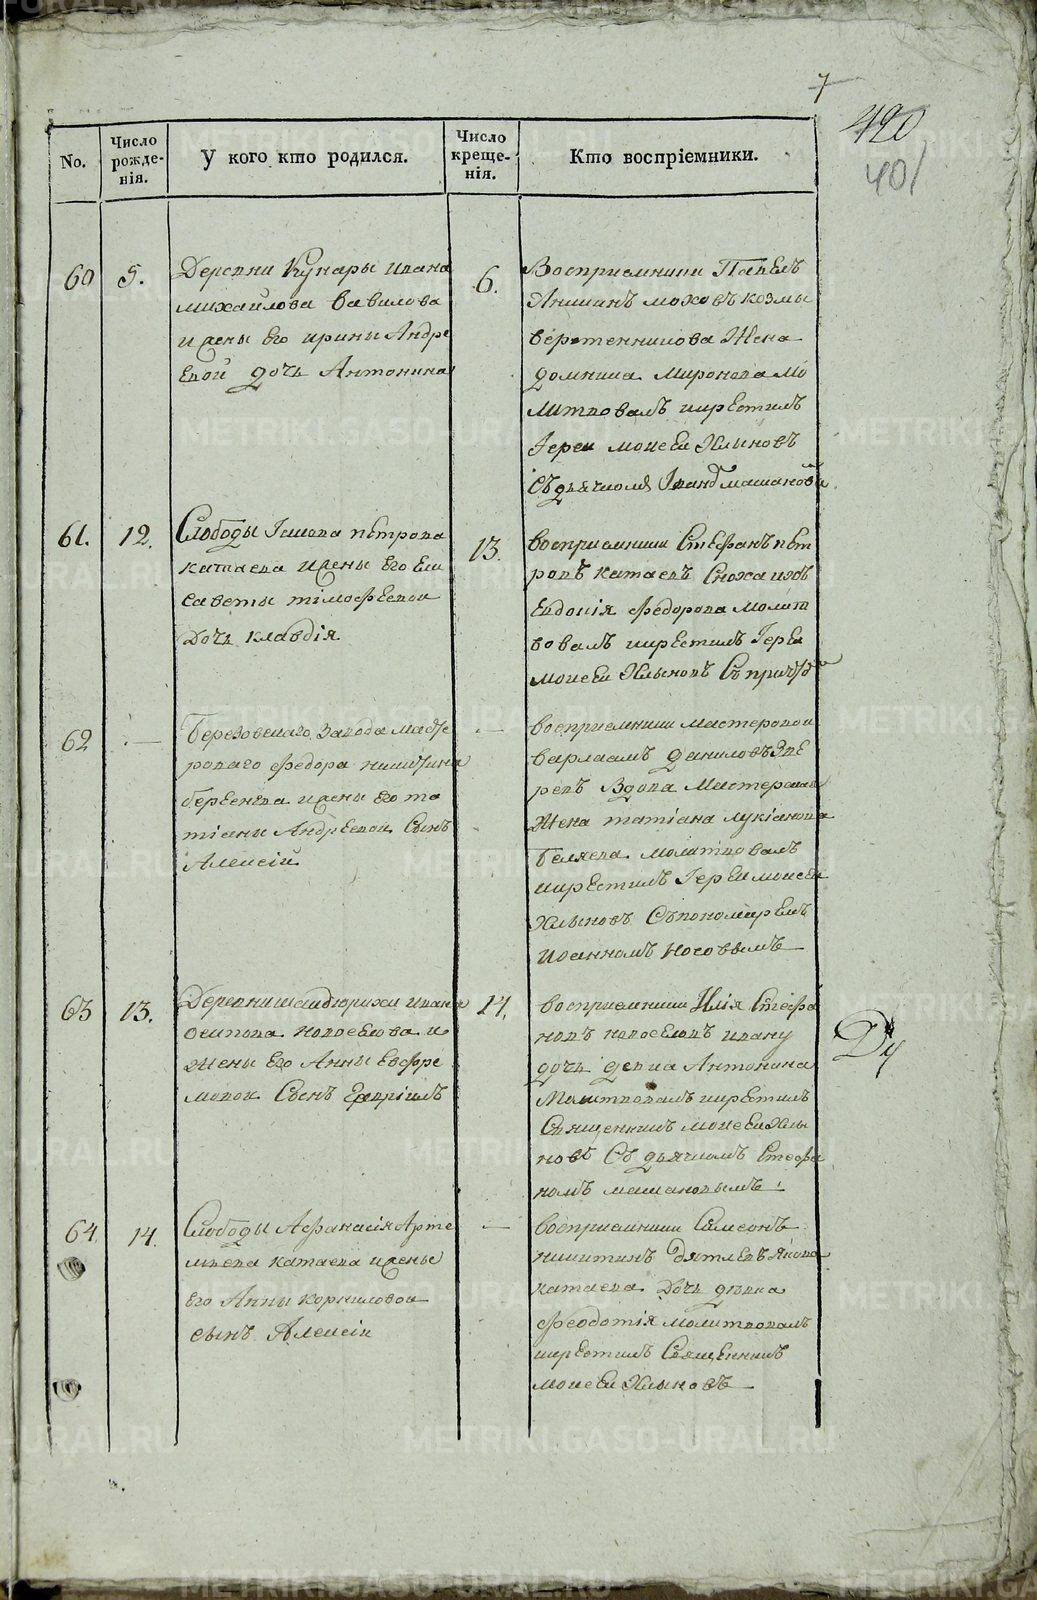 7
420
401
No.
Число рожде-нія.
У кого кто родился.
Число креще-нія.
Кто воспріемники.
60
5.
Деревни Кунары ивана
михайлова вавилова
и жены Его ирины Андре
Евой дочь Антонина
6.
Восприемники Павелъ
Аникинъ моховъ козмы
веретенникова Жена
домника миронова мо
литвовалъ икрестилъ
Іереи моисеи Хлыновъ
Съдьячкомъ
61.
12.
Слободы Іякова петрова
катаева ижены Его Ели
саветы тімофеевои
дочь клавдія
13.
восприемники Стефанъ пет
ровъ катаевъ Сноха ихъ
Евдокія федорова молит
вовалъ икрестилъ Іереи
моисеи Хлыновъ Съпричтомъ
62
—
Березовскаго завода масте
роваго Федора никитина
ижены Его та
тіаны Андреевои Сынъ
Алексій
—
восприемники мастеровои
варлаамъ даниловъ Зве
ревъ Вдова Мастерская
Жена татіана лукіанова
Беляева молитвовалъ
икрестилъ Іереи моисеи
Хлыновъ Съпономаремъ
иоанномъ Носовымъ
63
13.
Деревни шайдурихи ивана
осипова новоселова и
Жены Его Анны Ефре
мовои Сынъ Гавріилъ
14.
восприемники Илія Стефа
новъ новоселовъ ивану
дочь девка Антонина
Молитвовалъ икрестилъ
Священникъ моисеи Хлы
новъ Съ дьячкомъ Стефа
номъ машановымъ
Ду
64
14.
Слободы Афанасія Арте
мьева катаева ижены
Его Анны корниловои
сынъ Алексіи
—
восприемники Симеонъ
никитинъ дятлевъ Якова
катаева дочь девка
Феодотія молитвовалъ
икрестилъ Священникъ
моисеи Хлыновъ
METRIKI.GASO-URAL.RU